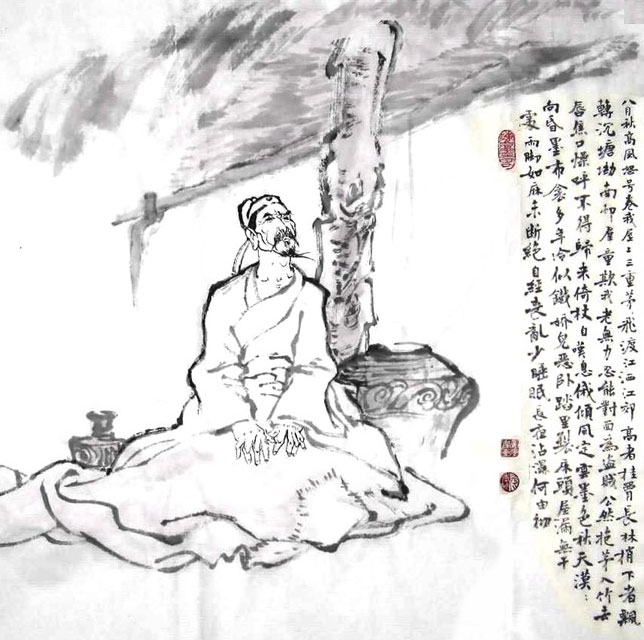 八月秋高風怒号卷我屋上三重茅飛渡江洒江郊高者挂罥長林梢下者飄
轉沉塘坳南邨童欺我老無力忍能對面為盗賊公然抱茅入竹去
唇焦口燥呼不得歸来倚杖自嘆息俄傾風定雲墨色秋天漠:
向昏墨布衾多年冷似鐵嬌兒惡卧踏里裂床頭屋漏無干
處雨脚如麻未断絶自經丧亂少睡眠長夜沾濕何由彻